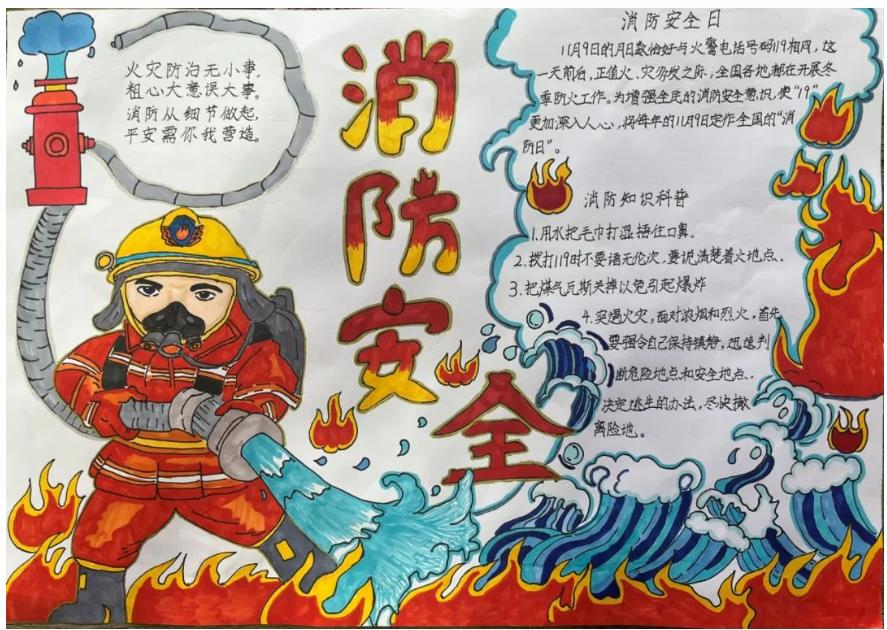 火灾防治无小事,
粗心大意误大事。
消防从细节做起,
平安需你我营造。
消防安全
消防安全日
11月9日的月日数恰好与火警电话号码119相同,这
一天前后,正值火、灾易发之际,全国各地都在开展冬
季防火工作。为增强全民的消防安全意识,使"119"
更加深入人心,将每年的11月9日定作全国的"消
防日"。
消防知识科普
1.用水把毛巾打湿捂住口鼻。
2.拨打119时不要语无伦次,要说清楚着火地点.
3.把煤气瓦斯关掉以免引起爆炸
4.突遇火灾,面对浓烟和烈火,首先
要强令自己保持镇静,迅速判
断危险地点和安全地点.
决定逃生的办法,尽快撤
离险地。